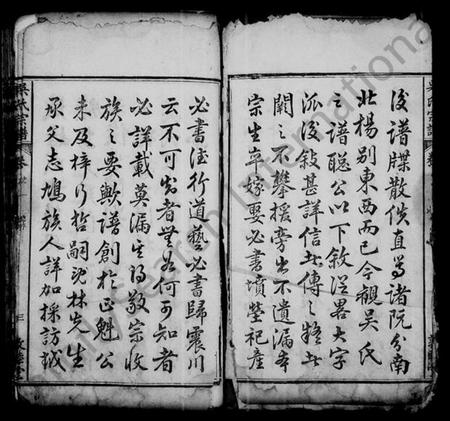 後譜牒散佚直等諸阮分南
北楊別東西而已今觀吳氏
之譜聰公以下敘從畧大字
派後敘甚詳信以傳之疑以
闕之不攀援旁出不遺漏本
宗生卒嫁娶必書墳塋祀產
必書德行道藝必書歸震川
云不可知者無若何可知者
必詳載莫漏生得敬宗收
族之要歟譜創於正魁公
未及梓行哲嗣林先生
承父志鳩族人詳加採訪誠
吳氏宗譜
三
FamilySearch International